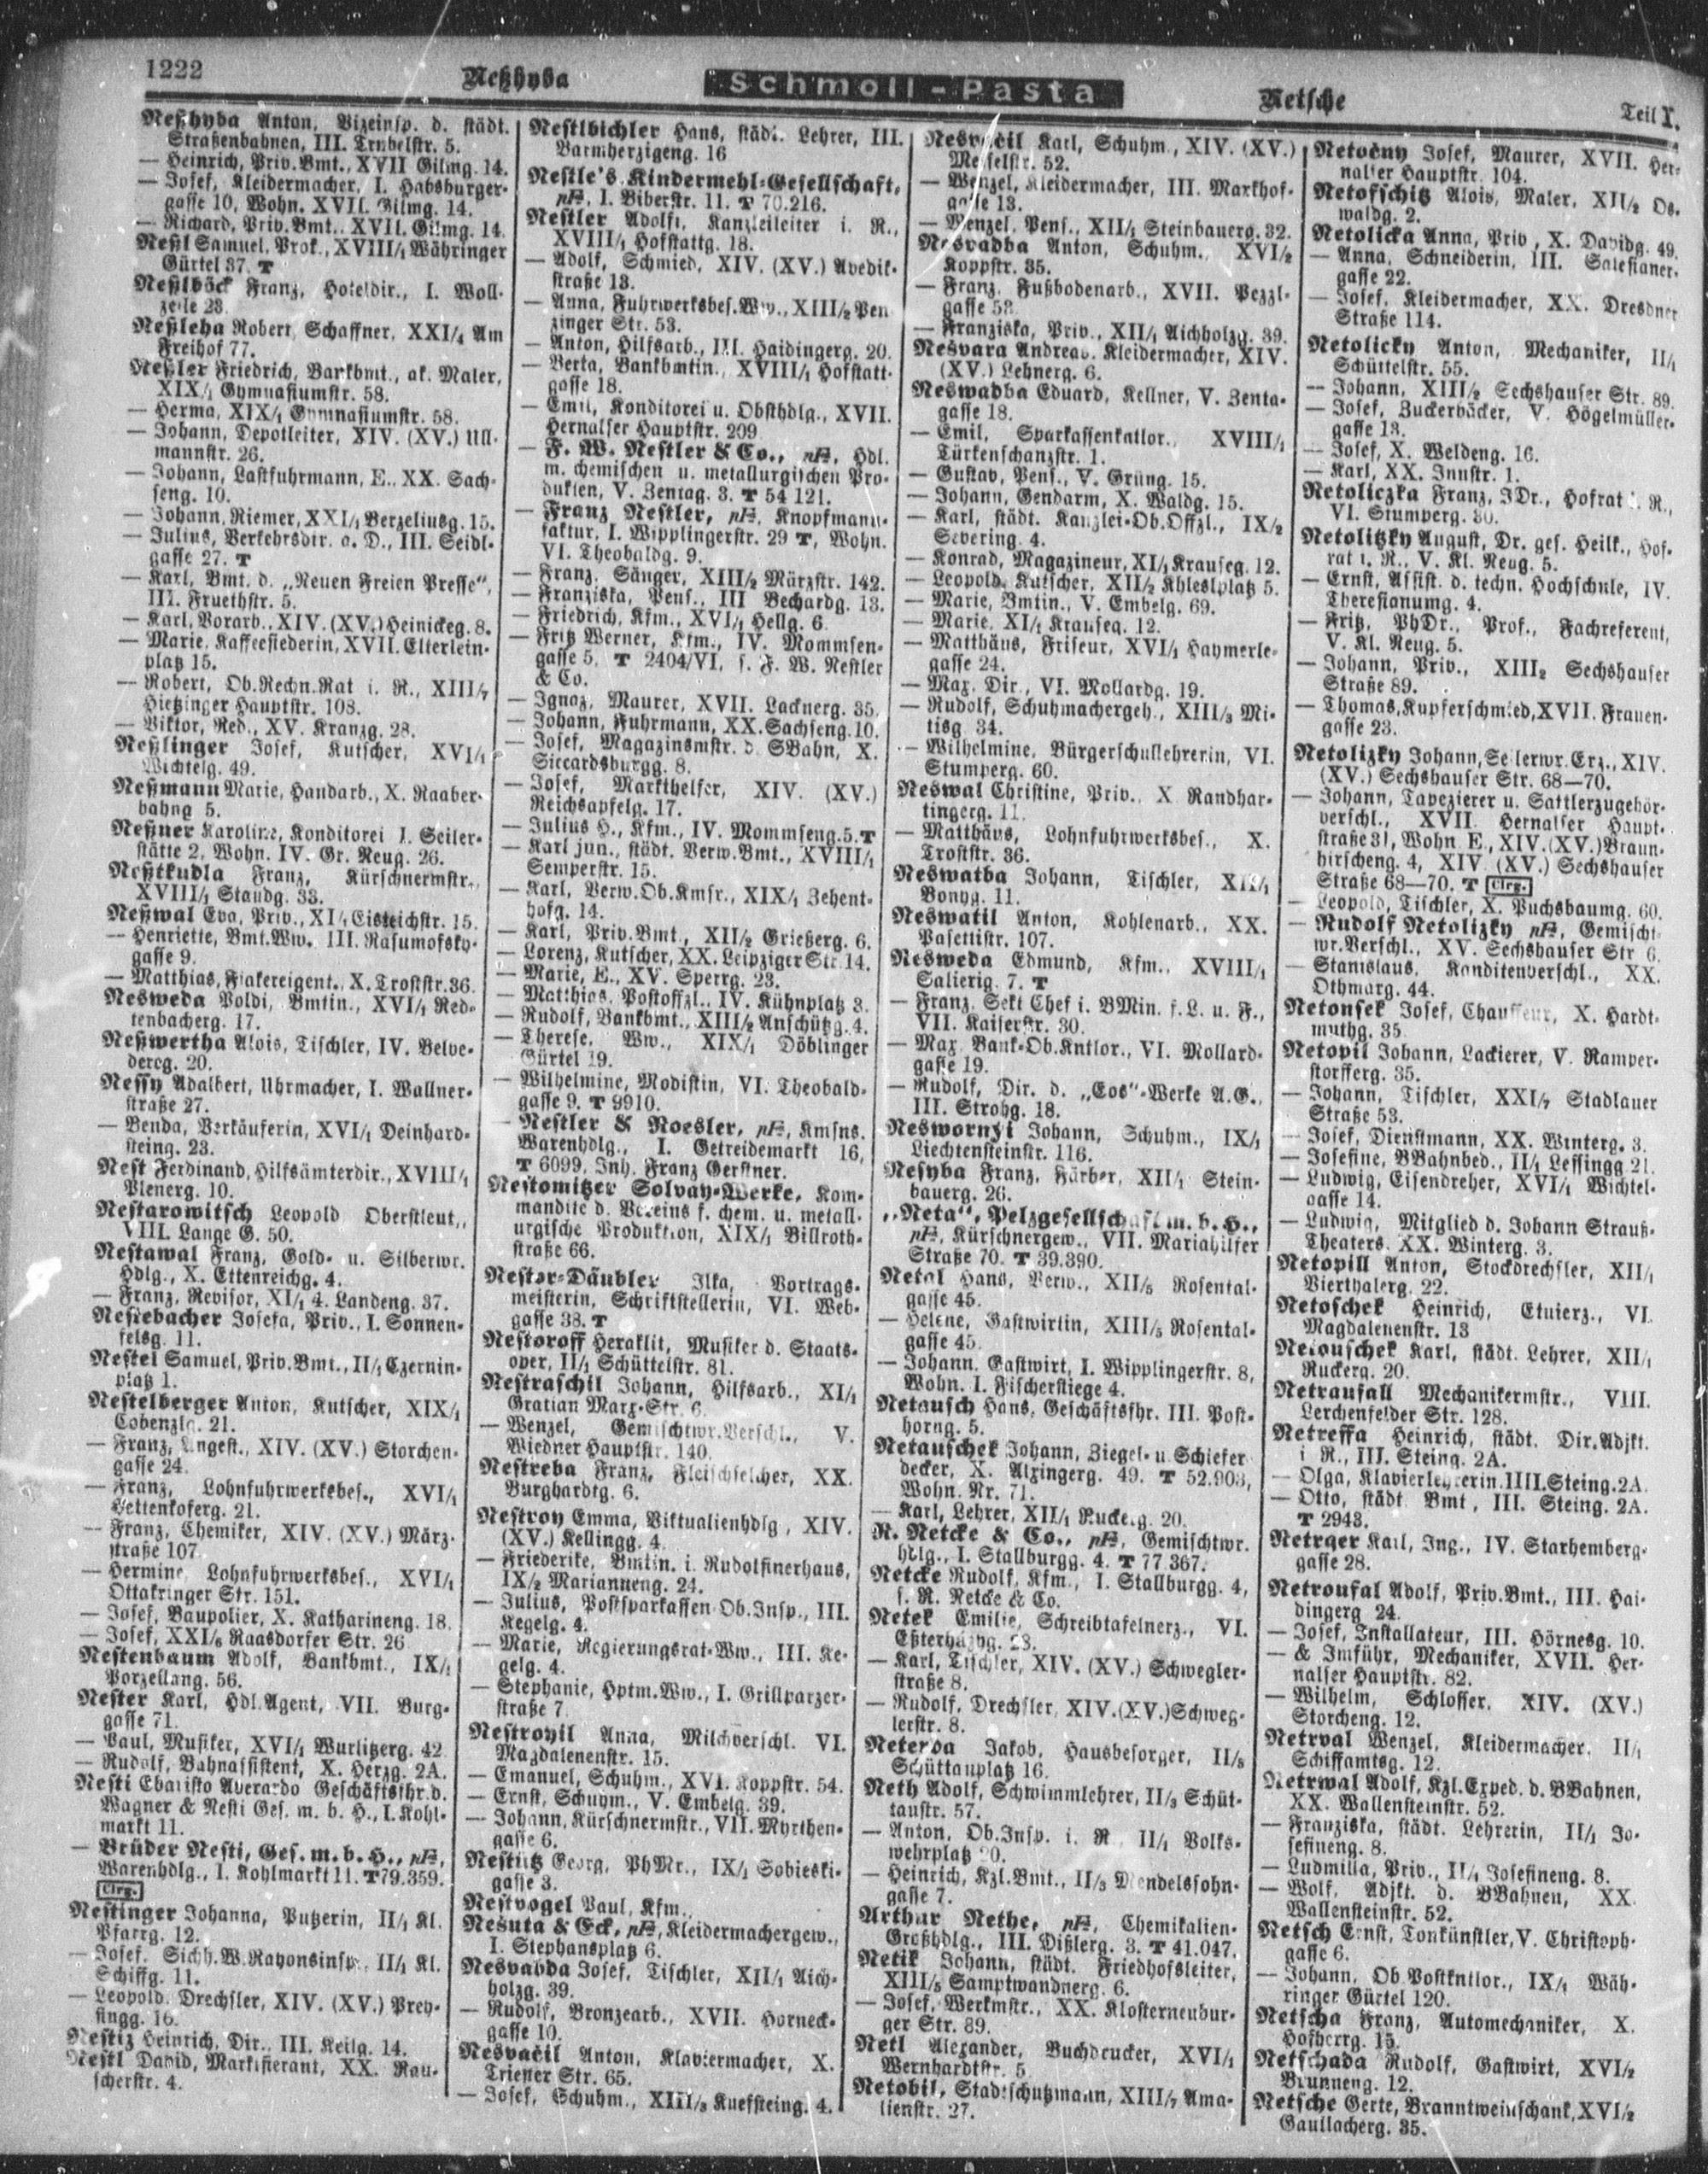 1222
Neßhyba
Schmoll-Pasta
Netsche
Teil I.
Neßhyba Anton, Vizeinsp. d. städt.
Straßenbahnen, III. Trubelstr. 5.
— Heinrich, Priv.Bmt., XVII Gilmg. 14.
— Josef, Kleidermacher, I. Habsburger-
gasse 10, Wohn. XVII. Gilmg. 14.
— Richard, Priv.Bmt., XVII. Gilmg. 14.
Neßl Samuel, Prok., XVIII/1 Währinger
Gürtel 37. T
Neßlböck Franz, Hoteldir., I. Woll-
zeile 23.
Neßleha Robert, Schaffner, XXI/4 Am
Freihof 77.
Neßler Friedrich, Bankbmt., ak. Maler,
XIX/1 Gymnasiumstr. 58.
— Herma, XIX/1 Gymnasiumstr. 58.
— Johann, Depotleiter, XIV. (XV.) Ull-
mannstr. 26.
— Johann, Lastfuhrmann, E., XX. Sach-
seng. 10.
— Johann, Riemer, XXI/1 Berzeliusg. 15.
— Julius, Verkehrsdir. a. D., III. Seidl-
gasse 27. T
— Karl, Bmt. d. „Neuen Freien Presse“,
III. Fruethstr. 5.
— Karl, Vorarb., XIV. (XV.) Heinickeg. 8.
— Marie, Kaffeesiederin, XVII. Elterlein-
platz 15.
— Robert, Ob.Rechn.Rat i. R., XIII/7
Hietzinger Hauptstr. 108.
— Viktor, Red., XV. Kranzg. 28.
Neßlinger Josef, Kutscher, XVI/1
Wichtelg. 49.
Neßmann Marie, Handarb., X. Raaber-
bahng 5.
Neßner Karoline, Konditorei I. Seiler-
stätte 2, Wohn. IV. Gr. Neug. 26.
Neßtkudla Franz, Kürschnermstr.,
XVIII/1 Staudg. 33.
Neßwal Eva, Priv., XI/1 Eisteichstr. 15.
— Henriette, Bmt.Ww. III. Rasumofsky-
gasse 9.
— Matthias, Fiakereigent., X. Troststr. 36.
Nesweda Poldi, Bmtin., XVI/1 Red-
tenbacherg. 17.
Neßwertha Alois, Tischler, IV. Belve-
dereg. 20.
Nessy Adalbert, Uhrmacher, I. Wallner-
straße 27.
— Benda, Verkäuferin, XVI/1 Deinhard-
steing. 23.
Nest Ferdinand, Hilfsämterdir., XVIII/1
Plenerg. 10.
Nestarowitsch Leopold Oberstleut.,
VIII. Lange G. 50.
Nestawal Franz, Gold- u. Silberwr.
Hdlg., X. Ettenreichg. 4.
— Franz, Revisor, XI/1 4. Landeng. 37.
Nestebacher Josefa, Priv., I. Sonnen-
felsg. 11.
Nestel Samuel, Priv.Bmt., II/1 Czernin-
platz 1.
Nestelberger Anton, Kutscher, XIX/1
Cobenzlg. 21.
— Franz, Angest., XIV. (XV.) Storchen-
gasse 24.
— Franz, Lohnfuhrwerksbes., XVI/1
Pettenkoferg. 21.
— Franz, Chemiker, XIV. (XV.) März-
straße 107.
— Hermine, Lohnfuhrwerksbes., XVI/1
Ottakringer Str. 151.
— Josef, Baupolier, X. Katharineng. 18.
— Josef, XXI/6 Raasdorfer Str. 26
Nestenbaum Adolf, Bankbmt., IX/1
Porzellang. 56.
Nester Karl, Hdl.Agent, VII. Burg-
gasse 71.
— Paul, Musiker, XVI/1 Wurlitzerg. 42
— Rudolf, Bahnassistent, X. Herzg. 2A.
Nesti Ebaristo Averardo Geschäftsfhr. d.
Wagner & Nesti Ges. m. b. H., I. Kohl-
markt 11.
— Brüder Nesti, Ges. m. b. H., pF,
Warenhdlg., I. Kohlmarkt 11. T 79.359.
Clrg.
Nestinger Johanna, Putzerin, II/1 Kl.
Pfarrg. 12.
— Josef, Sichh.W.Rayonsinsp., II/1 Kl.
Schiffg. 11.
— Leopold, Drechsler, XIV. (XV.) Prey-
singg. 16.
Nestiz Heinrich, Dir., III. Keilg. 14.
Nestl David, Marktfierant, XX. Rau-
scherstr. 4.
Nestlbichler Hans, städt. Lehrer, III.
Barmherzigeng. 16
Nestle's Kindermehl-Gesellschaft,
pF, I. Biberstr. 11. T 70.216.
Nestler Adolf, Kanzleileiter i. R.,
XVIII/1 Hofstattg. 18.
— Adolf, Schmied, XIV. (XV.) Avedik-
straße 13.
— Anna, Fuhrwerksbes.Ww., XIII/2 Pen
zinger Str. 53.
— Anton, Hilfsarb., III. Haidingerg. 20.
— Berta, Bankbmtin., XVIII/1 Hofstatt-
gasse 18.
— Emil, Konditorei u. Obsthdlg., XVII.
Hernalser Hauptstr. 209
— F. W. Nestler & Co., pF, Hdl.
m. chemischen u. metallurgischen Pro-
dukten, V. Zentag. 3. T 54 121.
— Franz Nestler, pF, Knopfmanu-
faktur, I. Wipplingerstr. 29 T, Wohn.
VI. Theobaldg. 9.
— Franz, Sänger, XIII/2 Märzstr. 142.
— Franziska, Pens., III Bechardg. 13.
— Friedrich, Kfm., XVI/1 Hellg. 6.
— Fritz Werner, Kfm., IV. Mommsen-
gasse 5, T 2404/VI, s. F. W. Nestler
& Co.
— Ignaz, Maurer, XVII. Lacknerg. 35.
— Johann, Fuhrmann, XX. Sachseng. 10.
— Josef, Magazinsmstr. d. SBahn, X.
Siccardsburgg. 8.
— Josef, Markthelfer, XIV. (XV.)
Reichsapfelg. 17.
— Julius H., Kfm., IV. Mommseng. 5. T
— Karl jun., städt. Verw.Bmt., XVIII/1
Semperstr. 15.
— Karl, Verw.Ob.Kmsr., XIX/1 Zehent-
hofg. 14.
— Karl, Priv.Bmt., XII/2 Grießerg. 6.
— Lorenz, Kutscher, XX. Leipziger Str. 14.
— Marie, E., XV. Sperrg. 23.
— Matthias, Postoffzl., IV. Kühnplatz 3.
— Rudolf, Bankbmt., XIII/2 Anschützg. 4.
— Therese, Ww., XIX/1 Döblinger
Gürtel 19.
— Wilhelmine, Modistin, VI. Theobald-
gasse 9. T 9910.
— Nestler & Roesler, pF, Kmsns.
Warenhdlg., I. Getreidemarkt 16,
T 6099, Inh. Franz Gerstner.
Nestomitzer Solvay-Werke, Kom-
mandite d. Vereins f. chem. u. metall-
urgische Produktion, XIX/1 Billroth-
straße 66.
Nestor-Däubler Ilka, Vortrags-
meisterin, Schriftstellerin, VI. Web-
gasse 38. T
Nestoroff Heraklit, Musiker d. Staats-
oper, II/1 Schüttelstr. 81.
Nestraschil Johann, Hilfsarb., XI/1
Gratian Marx-Str. 6.
— Wenzel, Gemischtwr.Verschl., V.
Wiedner Hauptstr. 140.
Nestreba Franz, Fleischselcher, XX.
Burghardtg. 6.
Nestroy Emma, Viktualienhdlg, XIV.
(XV.) Kellingg. 4.
— Friederike, Bmtin. i. Rudolfinerhaus,
IX/2 Marianneng. 24.
— Julius, Postsparkassen Ob.Insp., III.
Kegelg. 4.
— Marie, Regierungsrat-Ww., III. Ke-
gelg. 4.
— Stephanie, Hptm.Ww., I. Grillparzer-
straße 7.
Nestroyil Anna, Milchverschl. VI.
Magdalenenstr. 15.
— Emanuel, Schuhm., XVI. Koppstr. 54.
— Ernst, Schuhm., V. Embelg. 39.
— Johann, Kürschnermstr., VII. Myrthen-
gasse 6.
Nestitz Georg, PhMr., IX/1 Sobieski-
gasse 3.
Nestvogel Paul, Kfm.,
Nesuta & Eck, pF, Kleidermachergew.,
I. Stephansplatz 6.
Nesvadda Josef, Tischler, XII/1 Aich-
holzg. 39.
— Rudolf, Bronzearb., XVII. Horneck-
gasse 10.
Nesvačil Anton, Klaviermacher, X.
Triester Str. 65.
— Josef, Schuhm., XIII/3 Kuefsteing. 4.
Nesvačil Karl, Schuhm., XIV. (XV.)
Meiselstr. 52.
— Wenzel, Kleidermacher, III. Markhof-
gasse 13.
— Wenzel, Pens., XII/1 Steinbauerg. 32.
Nesvadba Anton, Schuhm., XVI/2
Koppstr. 35.
— Franz, Fußbodenarb., XVII. Pezzl-
gasse 53.
— Franziska, Priv., XII/1 Aichholzg. 39.
Nesvara Andreas, Kleidermacher, XIV.
(XV.) Lehnerg. 6.
Neswadba Eduard, Kellner, V. Zenta-
gasse 18.
— Emil, Sparkassenkatlor., XVIII/1
Türkenschanzstr. 1.
— Gustav, Pens., V. Grüng. 15.
— Johann, Gendarm, X. Waldg. 15.
— Karl, städt. Kanzlei-Ob.Offzl., IX/2
Severing. 4.
— Konrad, Magazineur, XI/1 Krauseg. 12.
— Leopold, Kutscher, XII/2 Khleslplatz 5.
— Marie, Bmtin., V. Embelg. 69.
— Marie, XI/1 Krauseg. 12.
— Matthäus, Friseur, XVI/1 Haymerle-
gasse 24.
— Max, Dir., VI. Mollardg. 19.
— Rudolf, Schuhmachergeh., XIII/3 Mi-
tisg. 34.
— Wilhelmine, Bürgerschullehrerin, VI.
Stumperg. 60.
Neswal Christine, Priv., X Randhar-
tingerg. 11.
— Matthäus, Lohnfuhrwerksbes., X.
Troststr. 36.
Neswatba Johann, Tischler, XII/1
Bonyg. 11.
Neswatil Anton, Kohlenarb., XX.
Pasettistr. 107.
Nesweda Edmund, Kfm., XVIII/1
Salierig. 7. T
— Franz, Sekt Chef i. BMin. f. L. u. F.,
VII. Kaiserstr. 30.
— Max, Bank-Ob.Kntlor., VI. Mollard-
gasse 19.
— Rudolf, Dir. d. „Eos“-Werke A.G.,
III. Strohg. 18.
Neswornyi Johann, Schuhm., IX/1
Liechtensteinstr. 116.
Nesyba Franz, Färber, XII/1 Stein-
bauerg. 26.
„Neta“, Pelzgesellschaft m. b. H.,
pF, Kürschnergew., VII. Mariahilfer
Straße 70. T 39.390.
Netal Hans, Verw., XII/5 Rosental-
gasse 45.
— Helene, Gastwirtin, XIII/5 Rosental-
gasse 45.
— Johann, Gastwirt, I. Wipplingerstr. 8,
Wohn. I. Fischerstiege 4.
Netausch Hans, Geschäftsfhr. III. Post-
horng. 5.
Netauschek Johann, Ziegel- u Schiefer
decker, X. Alxingerg. 49. T 52.903,
Wohn. Nr. 71.
— Karl, Lehrer, XII/1 Ruckerg. 20.
R. Netcke & Co., pF, Gemischtwr.
hdlg., I. Stallburgg. 4. T 77.367.
Netcke Rudolf, Kfm., I. Stallburgg. 4,
s. R. Netcke & Co.
Netek Emilie, Schreibtafelnerz., VI.
Eßterházyg. 23.
— Karl, Tischler, XIV. (XV.) Schwegler-
straße 8.
— Rudolf, Drechsler, XIV. (XV.) Schweg-
lerstr. 8.
Neterda Jakob, Hausbesorger, II/3
Schüttauplatz 16.
Neth Adolf, Schwimmlehrer, II/3 Schüt-
taustr. 57.
— Anton, Ob.Insp. i. R., II/1 Volks-
wehrplatz 20.
— Heinrich, Kzl.Bmt., II/3 Mendelssohn-
gasse 7.
Arthur Nethe, pF, Chemikalien-
Großhdlg., III. Dißlerg. 3. T 41.047.
Netik Johann, städt. Friedhofsleiter,
XIII/5 Samptwandnerg. 6.
— Josef, Werkmstr., XX. Klosterneubur-
ger Str. 89.
Netl Alexander, Buchdrucker, XVI/1
Wernhardtstr. 5
Netobil, Stadtschutzmann, XIII/7 Ama-
lienstr. 27.
Netočny Josef, Maurer, XVII. Her-
nalser Hauptstr. 104.
Netofschitz Alois, Maler, XII/2 Os-
waldg. 2.
Netolicka Anna, Priv., X. Davidg. 49.
— Anna, Schneiderin, III. Salesianer-
gasse 22.
— Josef, Kleidermacher, XX. Dresdner
Straße 114.
Netolicky Anton, Mechaniker, II/1
Schüttelstr. 55.
— Johann, XIII/2 Sechshauser Str. 89.
— Josef, Zuckerbäcker, V. Högelmüller-
gasse 13.
— Josef, X. Weldeng. 16.
— Karl, XX. Innstr. 1.
Netoliczka Franz, JDr., Hofrat i. R.,
VI. Stumperg. 30.
Netolitzky August, Dr. ges. Heilk., Hof-
rat i. R., V. Kl. Neug. 5.
— Ernst, Assist. d. techn. Hochschule, IV.
Theresianumg. 4.
— Fritz, PhDr., Prof., Fachreferent,
V. Kl. Neug. 5.
— Johann, Priv., XIII/2 Sechshauser
Straße 89.
— Thomas, Kupferschmied, XVII. Frauen-
gasse 23.
Netolizky Johann, Seilerwr.Erz., XIV.
(XV.) Sechshauser Str. 68—70.
— Johann, Tapezierer u. Sattlerzugehör-
verschl., XVII. Hernalser Haupt-
straße 31, Wohn E., XIV. (XV.) Braun-
hirscheng. 4, XIV. (XV.) Sechshauser
Straße 68—70. T Clrg.
— Leopold, Tischler, X. Puchsbaumg. 60.
— Rudolf Netolizky pF, Gemischt
wr.Verschl., XV. Sechshauser Str. 6.
— Stanislaus, Kanditenverschl., XX.
Othmarg. 44.
Netonsek Josef, Chauffeur, X. Hardt-
muthg. 35
Netopil Johann, Lackierer, V. Ramper-
storfferg. 35.
— Johann, Tischler, XXI/7 Stadlauer
Straße 53.
— Josef, Dienstmann, XX. Winterg. 3.
— Josefine, BBahnbed., II/1 Lessingg. 21.
— Ludwig, Eisendreher, XVI/1 Wichtel-
gasse 14.
— Ludwig, Mitglied d. Johann Strauß-
Theaters, XX. Winterg. 3.
Netopill Anton, Stockdrechsler, XII/1
Vierthalerg. 22.
Netoschek Heinrich, Etuierz., VI.
Magdalenenstr. 13
Netouschek Karl, städt. Lehrer, XII/1
Ruckerg. 20.
Netraufall Mechanikermstr., VIII.
Lerchenfelder Str. 128.
Netreffa Heinrich, städt. Dir.Adjkt.
i R., III. Steing. 2A.
— Olga, Klavierlehrerin, III. Steing. 2A.
— Otto, städt. Bmt, III. Steing. 2A.
T 2943.
Netrger Karl, Ing., IV. Starhemberg-
gasse 28.
Netroufal Adolf, Priv.Bmt., III. Hai-
dingerg. 24.
— Josef, Installateur, III. Hörnesg. 10.
— & Imführ, Mechaniker, XVII. Her-
nalser Hauptstr. 82.
— Wilhelm, Schlosser, XIV. (XV.)
Storcheng. 12.
Netrval Wenzel, Kleidermacher, II/1
Schiffamtsg. 12.
Netrwal Adolf, Kzl.Exped. d. BBahnen,
XX. Wallensteinstr. 52.
— Franziska, städt. Lehrerin, II/1 Jo-
sefineng. 8.
— Ludmilla, Priv., II/1 Josefineng. 8.
— Wolf, Adjkt. d. BBahnen, XX.
Wallensteinstr. 52.
Netsch Ernst, Tonkünstler, V. Christoph-
gasse 6.
— Johann, Ob.Postkntlor., IX/1 Wäh-
ringer Gürtel 120.
Netscha Franz, Automechaniker, X.
Hofherrg. 15.
Netschada Rudolf, Gastwirt, XVI/2
Brunneng. 12.
Netsche Gerte, Branntweinschank, XVI/2
Gaullacherg. 35.